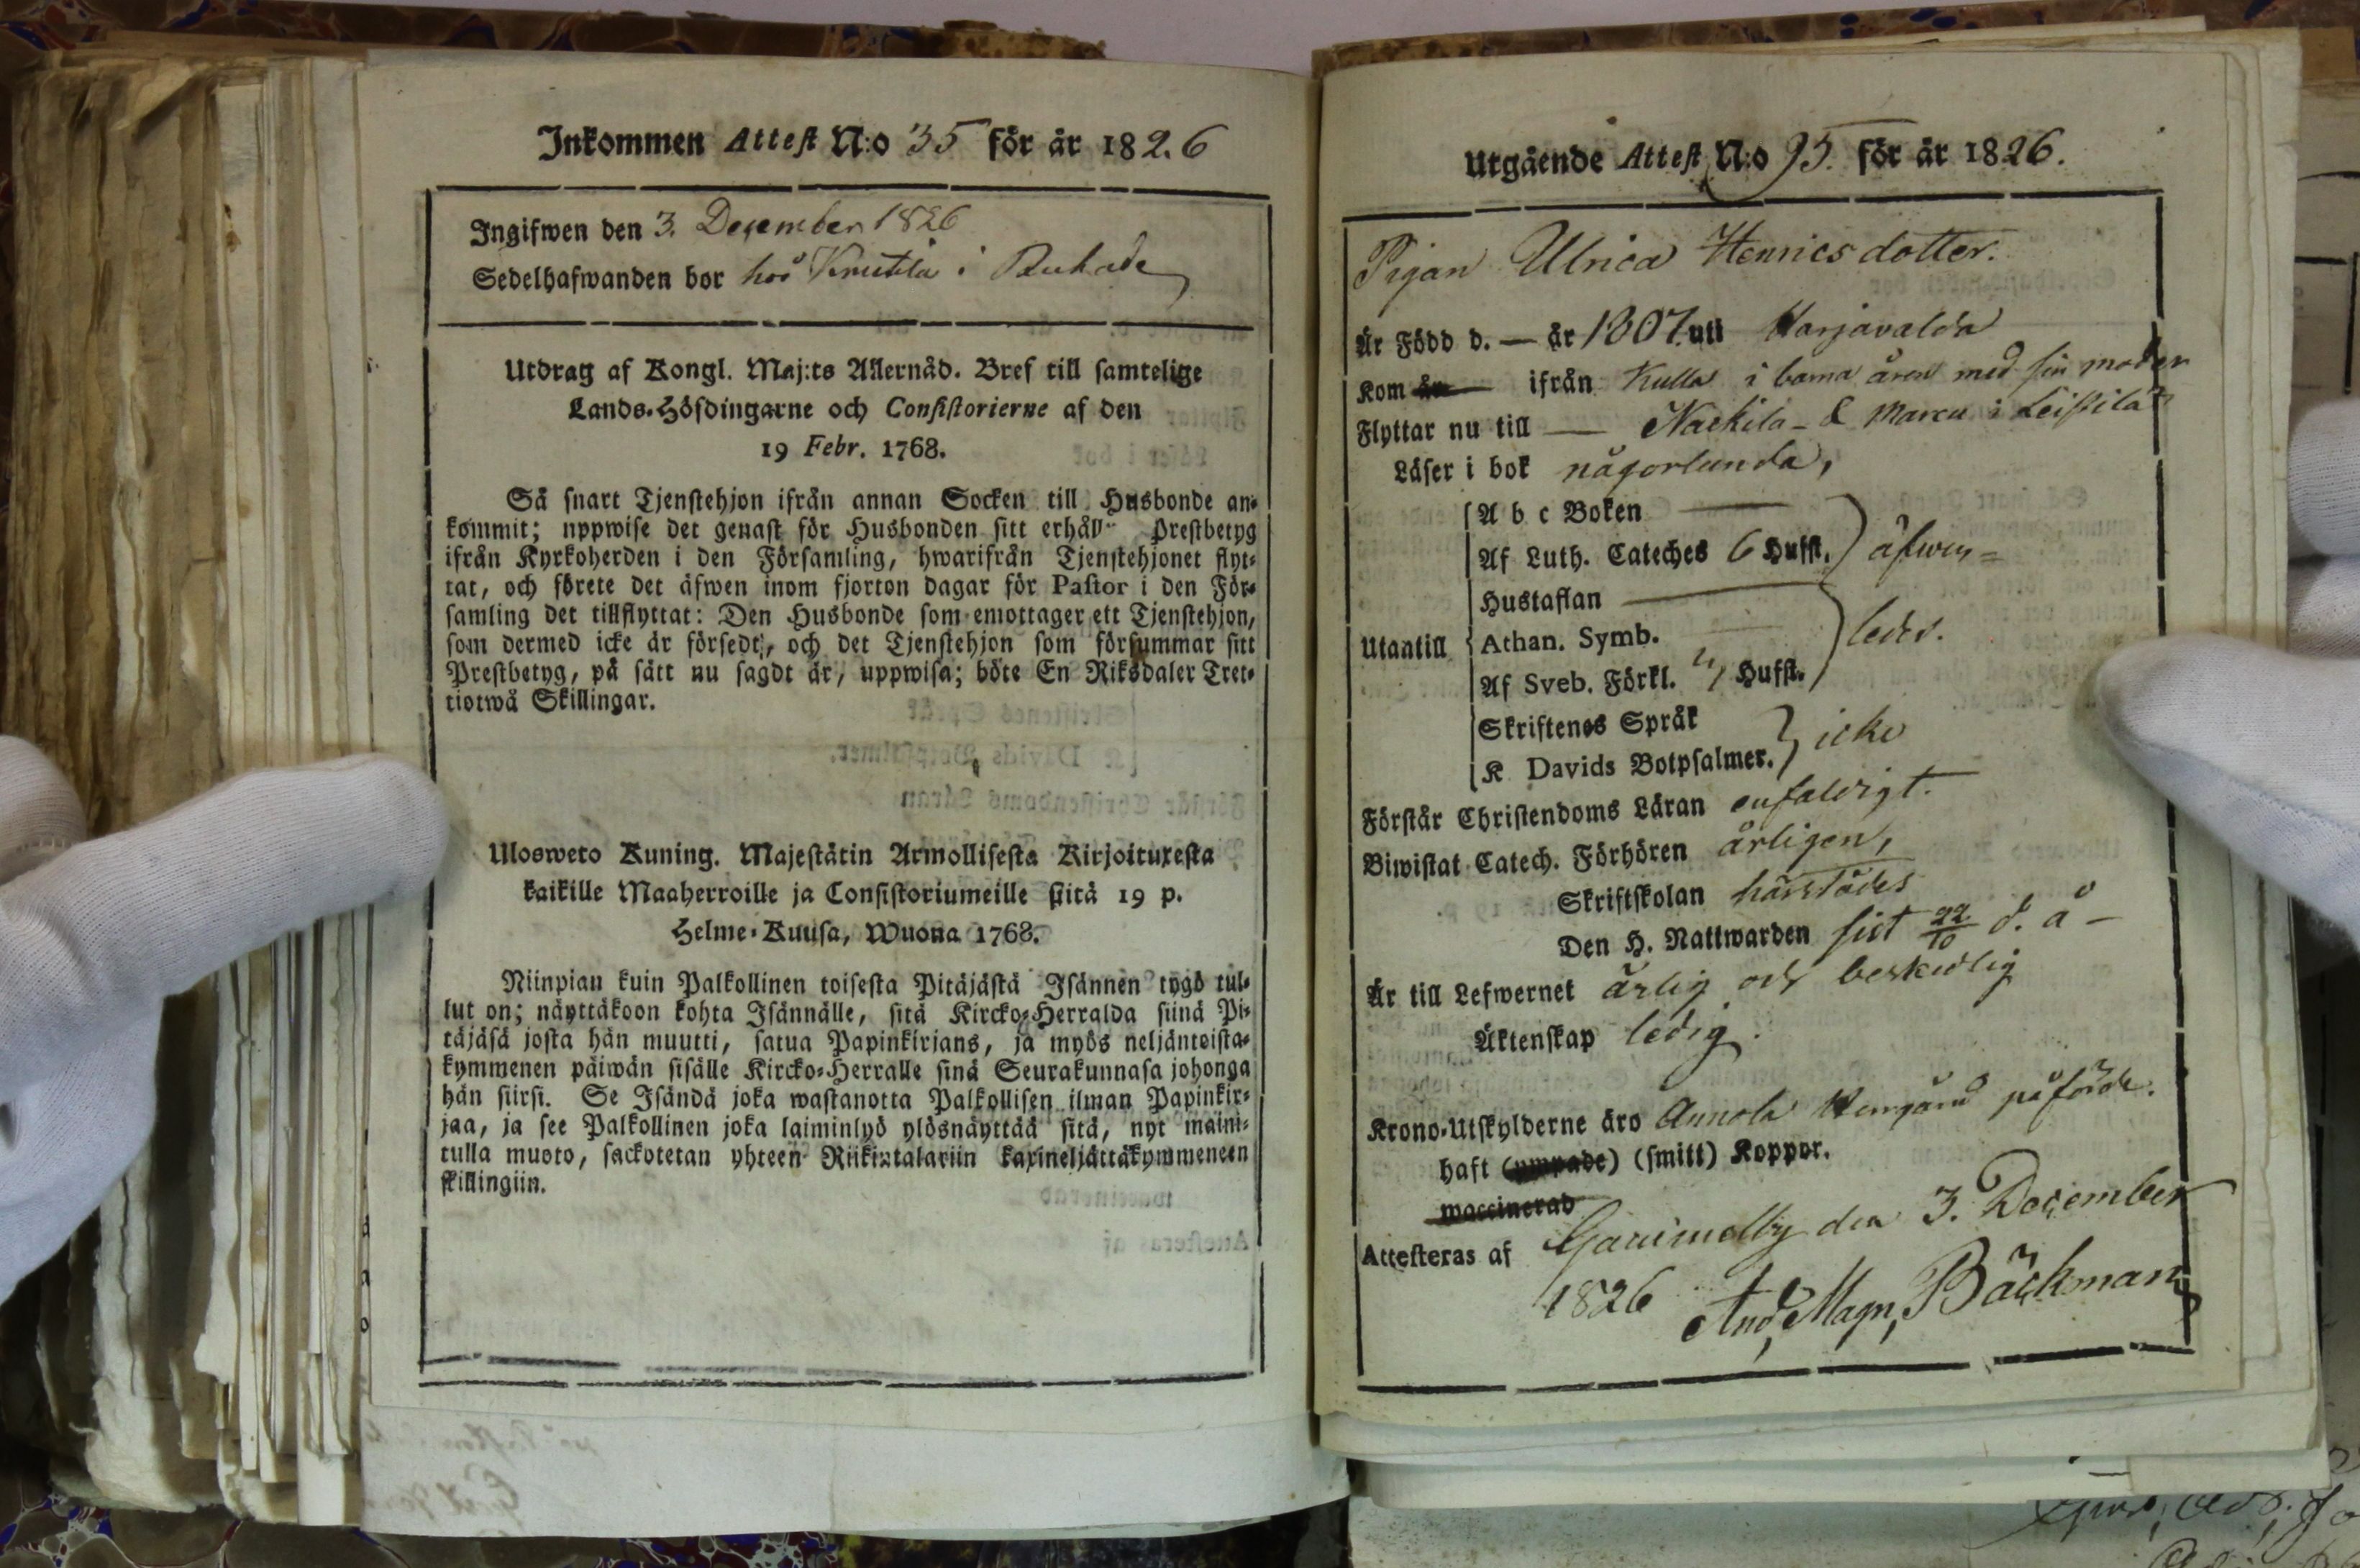 Inkommen Attest N:o 35 för år 182.6
Ingifwen den 3. December 1826
Sedelhafwanden bor hos Krutila i
Utdrag af Kongl. Maj:ts Allernåd. Bref till samtelige
Lands-Höfdingarne och Consistorierne af den
19 Febr. 1768.
Så snart Tjenstehjon ifrån annan Socken till Husbonde an-
kommit; uppwise det genast för Husbonden sitt erhåll- Prestbetyg
ifrån Kyrkoherden i den Församling, hwarifrån Tjenstehjonet flyt-
tat, och förete det äfwen inom fjorton dagar för Pastor i den För-
samling det tillflyttat: Den Husbonde som emottager ett Tjenstehjon,
som dermed icke är försedt, och det Tjenstehjon som försummar sitt
Prestbetyg, på sätt nu sagdt är, uppwisa; böte En Riksdaler Tret-
tiotwå Skillingar.
Ulosweto Kuning. Majestätin Armollisesta Kirjoituxesta
kaikille Maaherroille ja Consistoriumeille siitä 19 p.
Helme-Kuusa, Wuona 1768.
Niinpian kuin Palkollinen toisesta Pitäjästä Isännen tygö tul-
lut on; näyttäkoon kohta Isännälle, sitä Kircko-Herralda siinä Pi-
täjäsä josta hän muutti, satua Papinkirjans, ja myös neljäntoista-
kymmenen päiwän sisälle Kircko-Herralle sinä Seurakunnasa johonga
hän siirsi. Se Isändä joka wastanotta Palkollisen ilman Papinkir-
jaa, ja see Palkollinen joka laiminlyö ylösnäyttää sitä, nyt maini-
tulla muoto, sackotetan yhteen Riikintalariin kaxineljättäkymmeneen
skillingiin.
Utgående Attest N:o 95. för år 1826.
Pigan Ulrica Henricsdotter.
Är Född d. — år 1807. uti Harjavalda
Kom år ifrån Kulla i barna åren med sin moder
Flyttar nu till — Nackila - & Marcu i Leistilä
Läser i bok någorlunda,
A b c Boken
Af Luth. Cateches 6 Hufst. äfwen=
Hustaflan
Utantill Athan. Symb. ledes.
Af Sveb. Förkl. Hufst.
Skriftenes Språk
K Davids Botpsalmer. icke
Förstår Christendoms Läran enfaldigt.
Biwistat Catech. Förhören årligen,
Skriftskolan härstädes
Den H. Nattwarden sist 22/10 d. å -
Är till Lefwernet ärlig och beskedlig
Äktenskap ledig.
Krono-Utskylderne äro Annola påförde.
haft (ympade) (smitt) Koppor.
waccinerad
Attesteras af den 3. December
1826 And, Magn, Bäckman